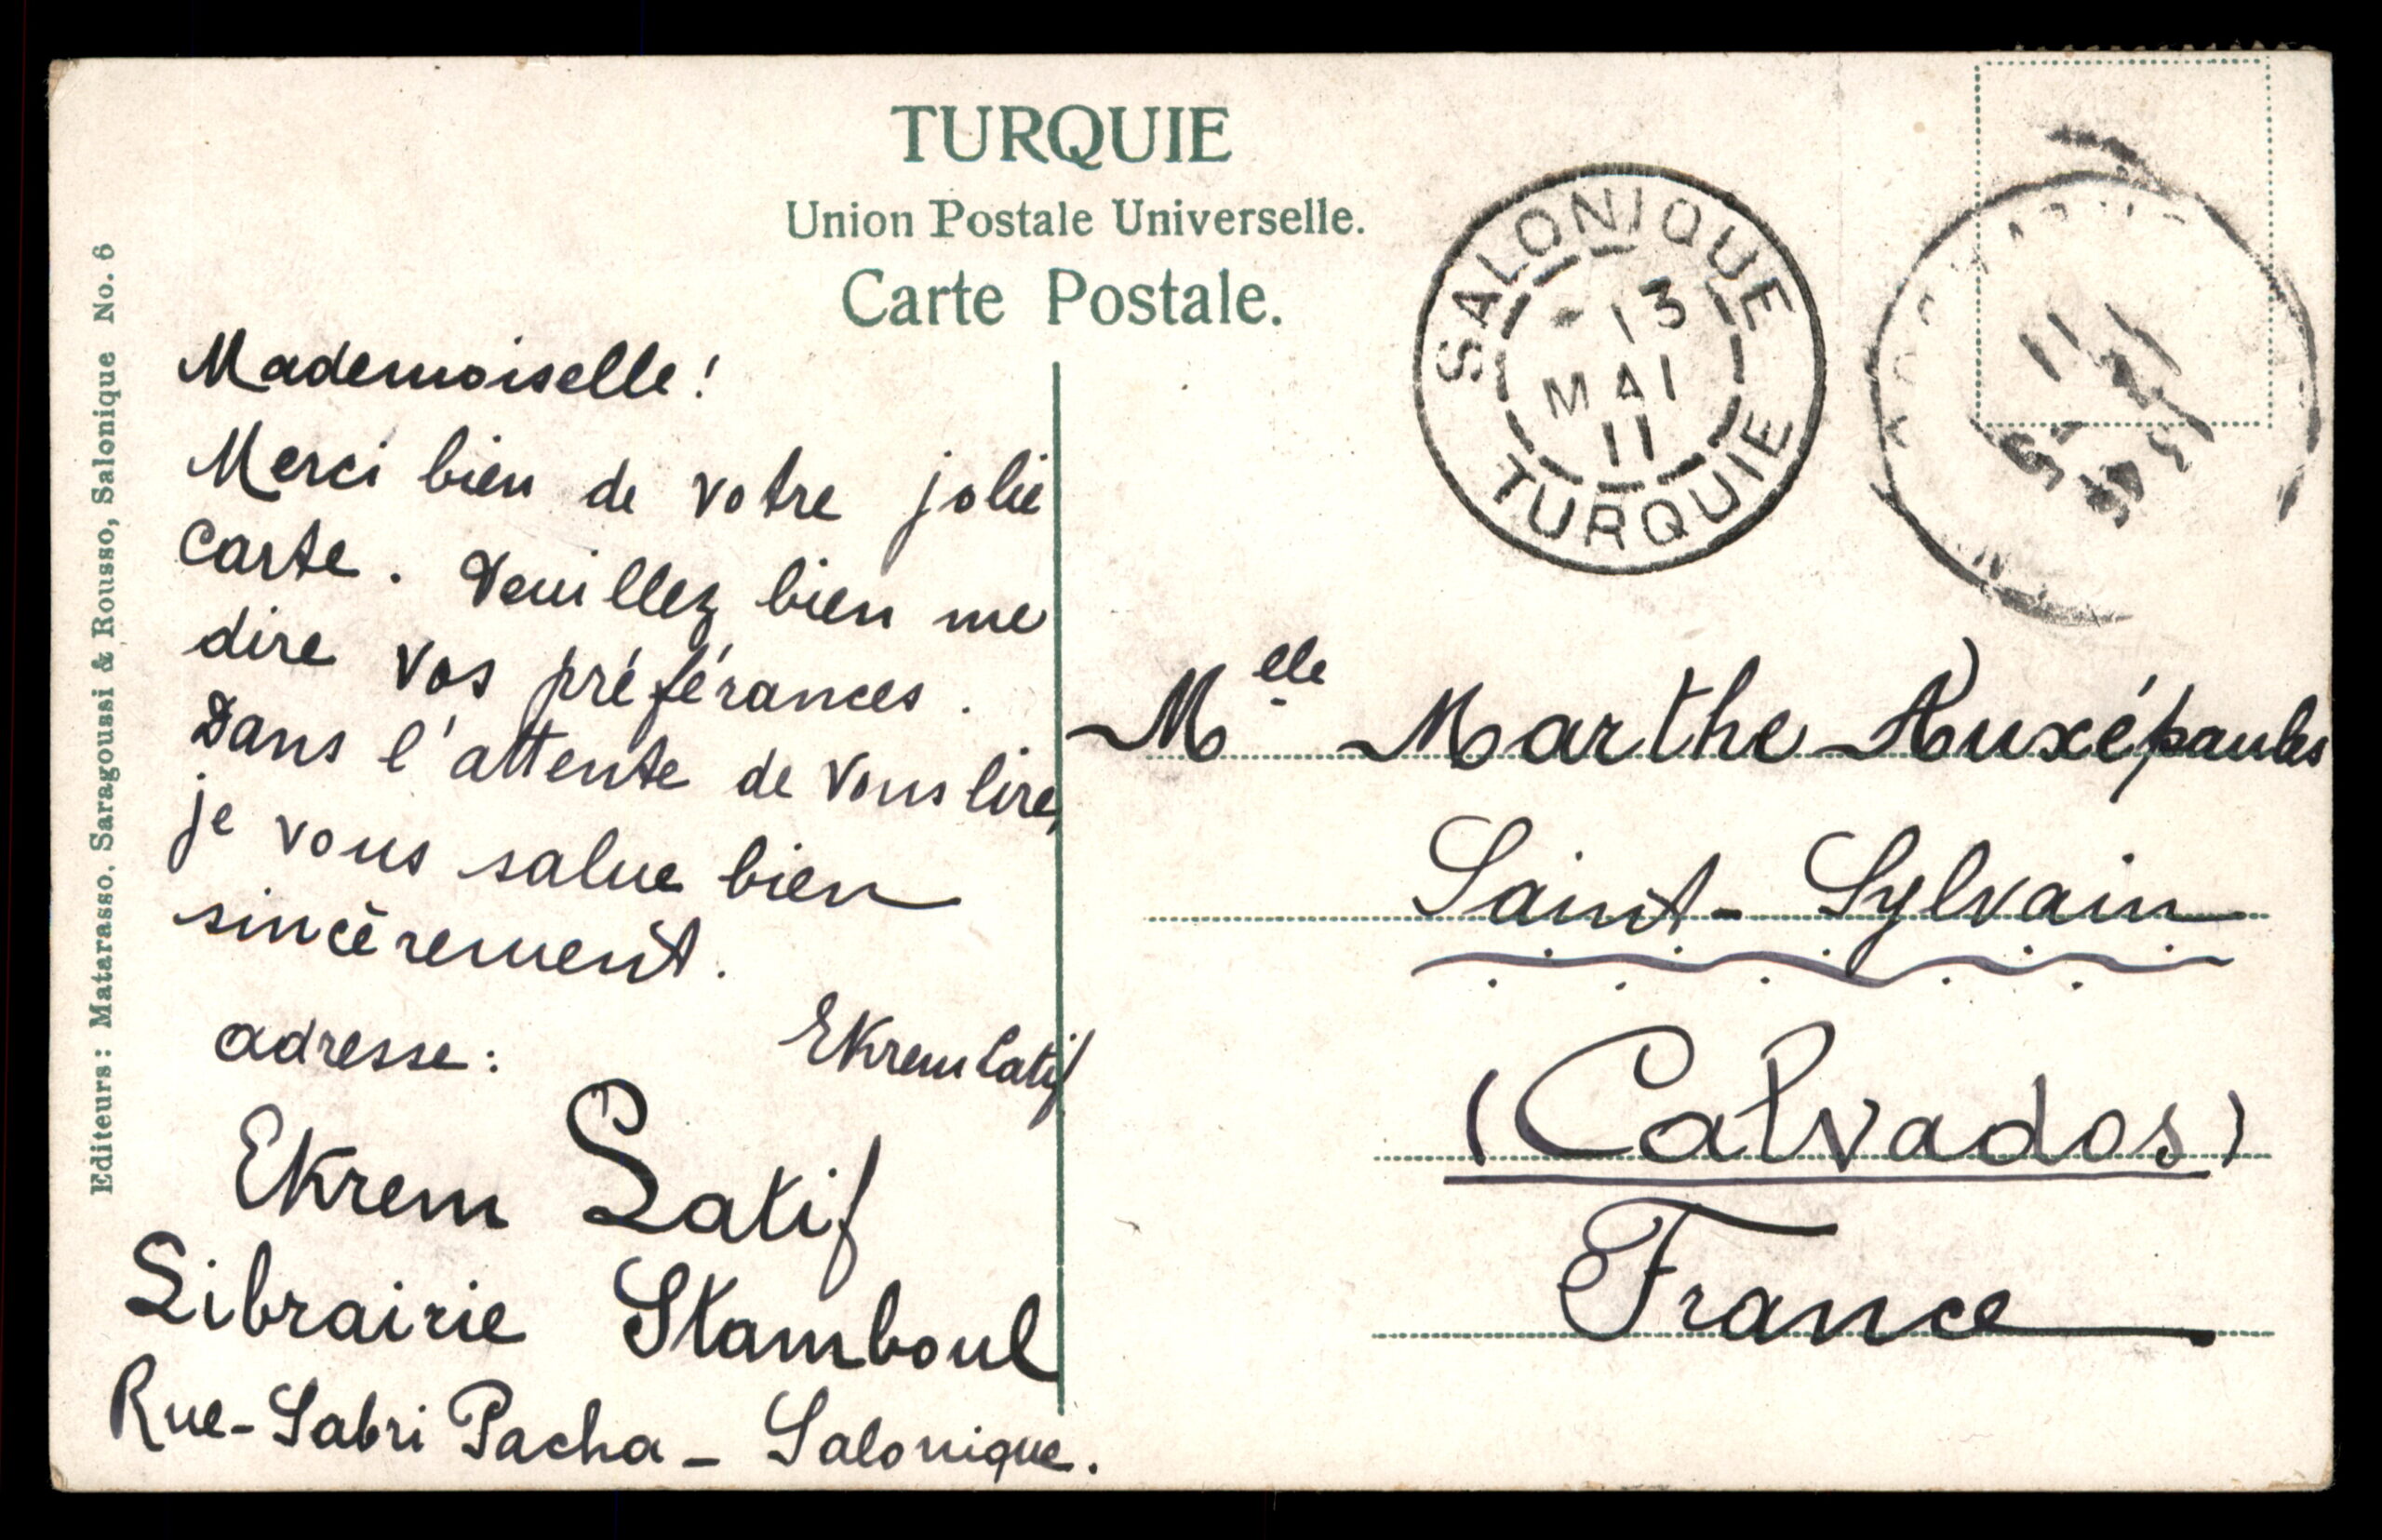 TURQUIE
Union Postale Universelle.
Carte Postale.
Editeurs: Matarasso, Saragoussi & Rousso, Salonique No. 6
SALONIQUE
13
MAI
11
TURQUIE
11
Mademoiselle!
Merci bien de votre jolie
carte. Veuillez bien me
dire vos préférances.
Dans l'attente de vous lire,
je vous salue bien
sincèrement.
Ekrem Latif
adresse:
Ekrem Latif
Librairie Stamboul
Rue-Sabri Pacha - Salonique.
Melle Marthe Auxépaules
Saint-Sylvain
(Calvados)
France